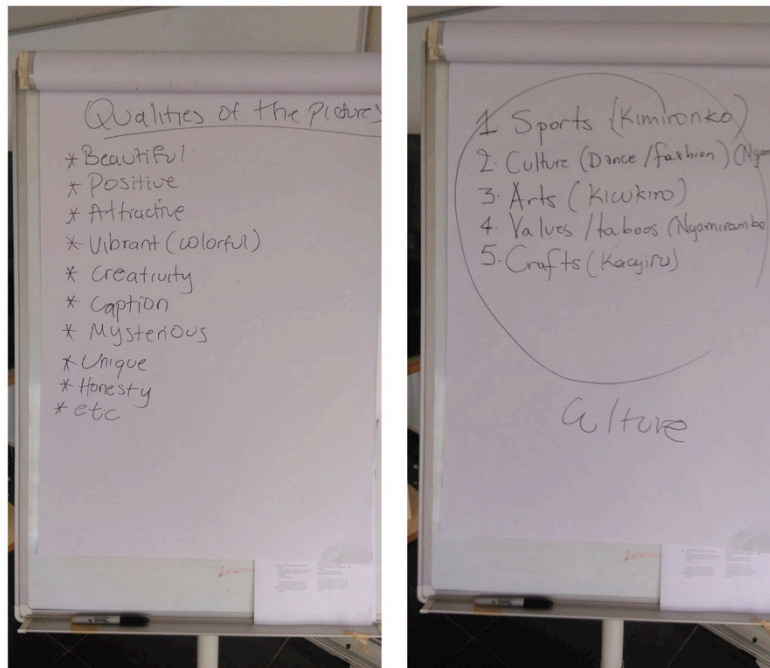 Qualities of the Pictures
* Beautiful
* Positive
* Attractive
* Vibrant (colorful)
* Creativity
* Caption
* Mysterious
* Unique
* Honesty
* etc
1 Sports (Kimironko)
2. Culture (Dance / fashion) (Nyam
3. Arts (Kicukiro)
4. Values / taboos (Nyamirambo
5. Crafts (Kacyiru)
Culture